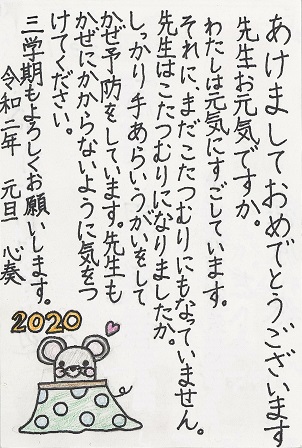 あけましておめでとうございます
先生お元気ですか。
わたしは元気にすごしています。
それに、まだこたつむりにもなっていません。
先生はこたつむりになりましたか。
しっかり手あらいうがいをして
かぜ予防をしています。先生も
かぜにかからないように気をつ
けてください。
三学期もよろしくお願いします。
令和二年 元旦 心奏
2020